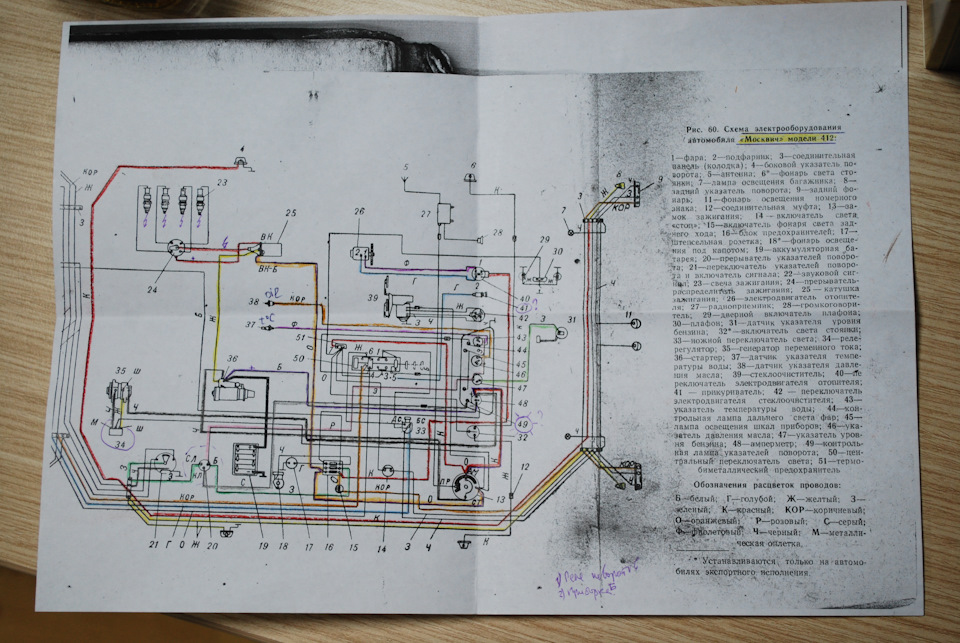 Рис. 60. Схема электрооборудования
автомобиля «Москвич» модели 412:
1—фара; 2—подфарник; 3—соединительная
панель (колодка); 4—боковой указатель по-
ворота; 5—антенна; 6*—фонарь света сто-
янки; 7—лампа освещения багажника; 8—
задний указатель поворота; 9—задний фо-
нарь; 11—фонарь освещения номерного
знака; 12—соединительная муфта; 13—за-
мок зажигания; 14—включатель света
«стоп»; 15—включатель фонаря света зад-
него хода; 16—блок предохранителей; 17—
штепсельная розетка; 18*—фонарь освеще-
ния под капотом; 19—аккумуляторная ба-
тарея; 20—прерыватель указателей поворо-
та; 21—переключатель указателей поворо-
та и включатель сигнала; 22—звуковой сиг-
нал; 23—свеча зажигания; 24—прерыватель-
распределитель зажигания; 25—катушка
зажигания; 26—электродвигатель отопите-
ля; 27—радиоприемник; 28—громкоговори-
тель; 29—дверной включатель плафона;
30—плафон; 31—датчик указателя уровня
бензина; 32*—включатель света стоянки;
33—ножной переключатель света; 34—реле-
регулятор; 35—генератор переменного тока;
36—стартер; 37—датчик указателя темпе-
ратуры воды; 38—датчик указателя давле-
ния масла; 39—стеклоочиститель; 40—пе-
реключатель электродвигателя отопителя;
41—прикуриватель; 42—переключатель
электродвигателя стеклоочистителя; 43—
указатель температуры воды; 44—кон-
трольная лампа дальнего света фар; 45—
лампа освещения шкал приборов; 46—ука-
затель давления масла; 47—указатель уров-
ня бензина; 48—амперметр; 49—контроль-
ная лампа указателей поворота; 50—цен-
тральный переключатель света; 51—термо-
биметаллический предохранитель
Обозначения расцветок проводов:
Б—белый; Г—голубой; Ж—желтый; З—
зеленый; К—красный; КОР—коричневый;
О—оранжевый; Р—розовый; С—серый;
Ф—фиолетовый; Ч—черный; М—металли-
ческая оплетка.
* Устанавливаются только на автомо-
билях экспортного исполнения.
4
КОР
Ж
З
К
23
24
ВК
25
ВК-Б
Б
Ж
38
КОР
37
Ф
51
50
36
Б
35
Ш
М
Ш
34
5
6
К
26
27
28
29
30
Ф
Г
1
2
39
Ж
Ч
40
41
42
43
44
45
46
47
48
49
32
31
З
33
Р
ПР
О
13
12
Ж
К
КОР
21
Г
О
Ж
20
19
18
17
16
15
14
З
Ч
К
3
7
8
9
Ж
КОР
Ч
11
4